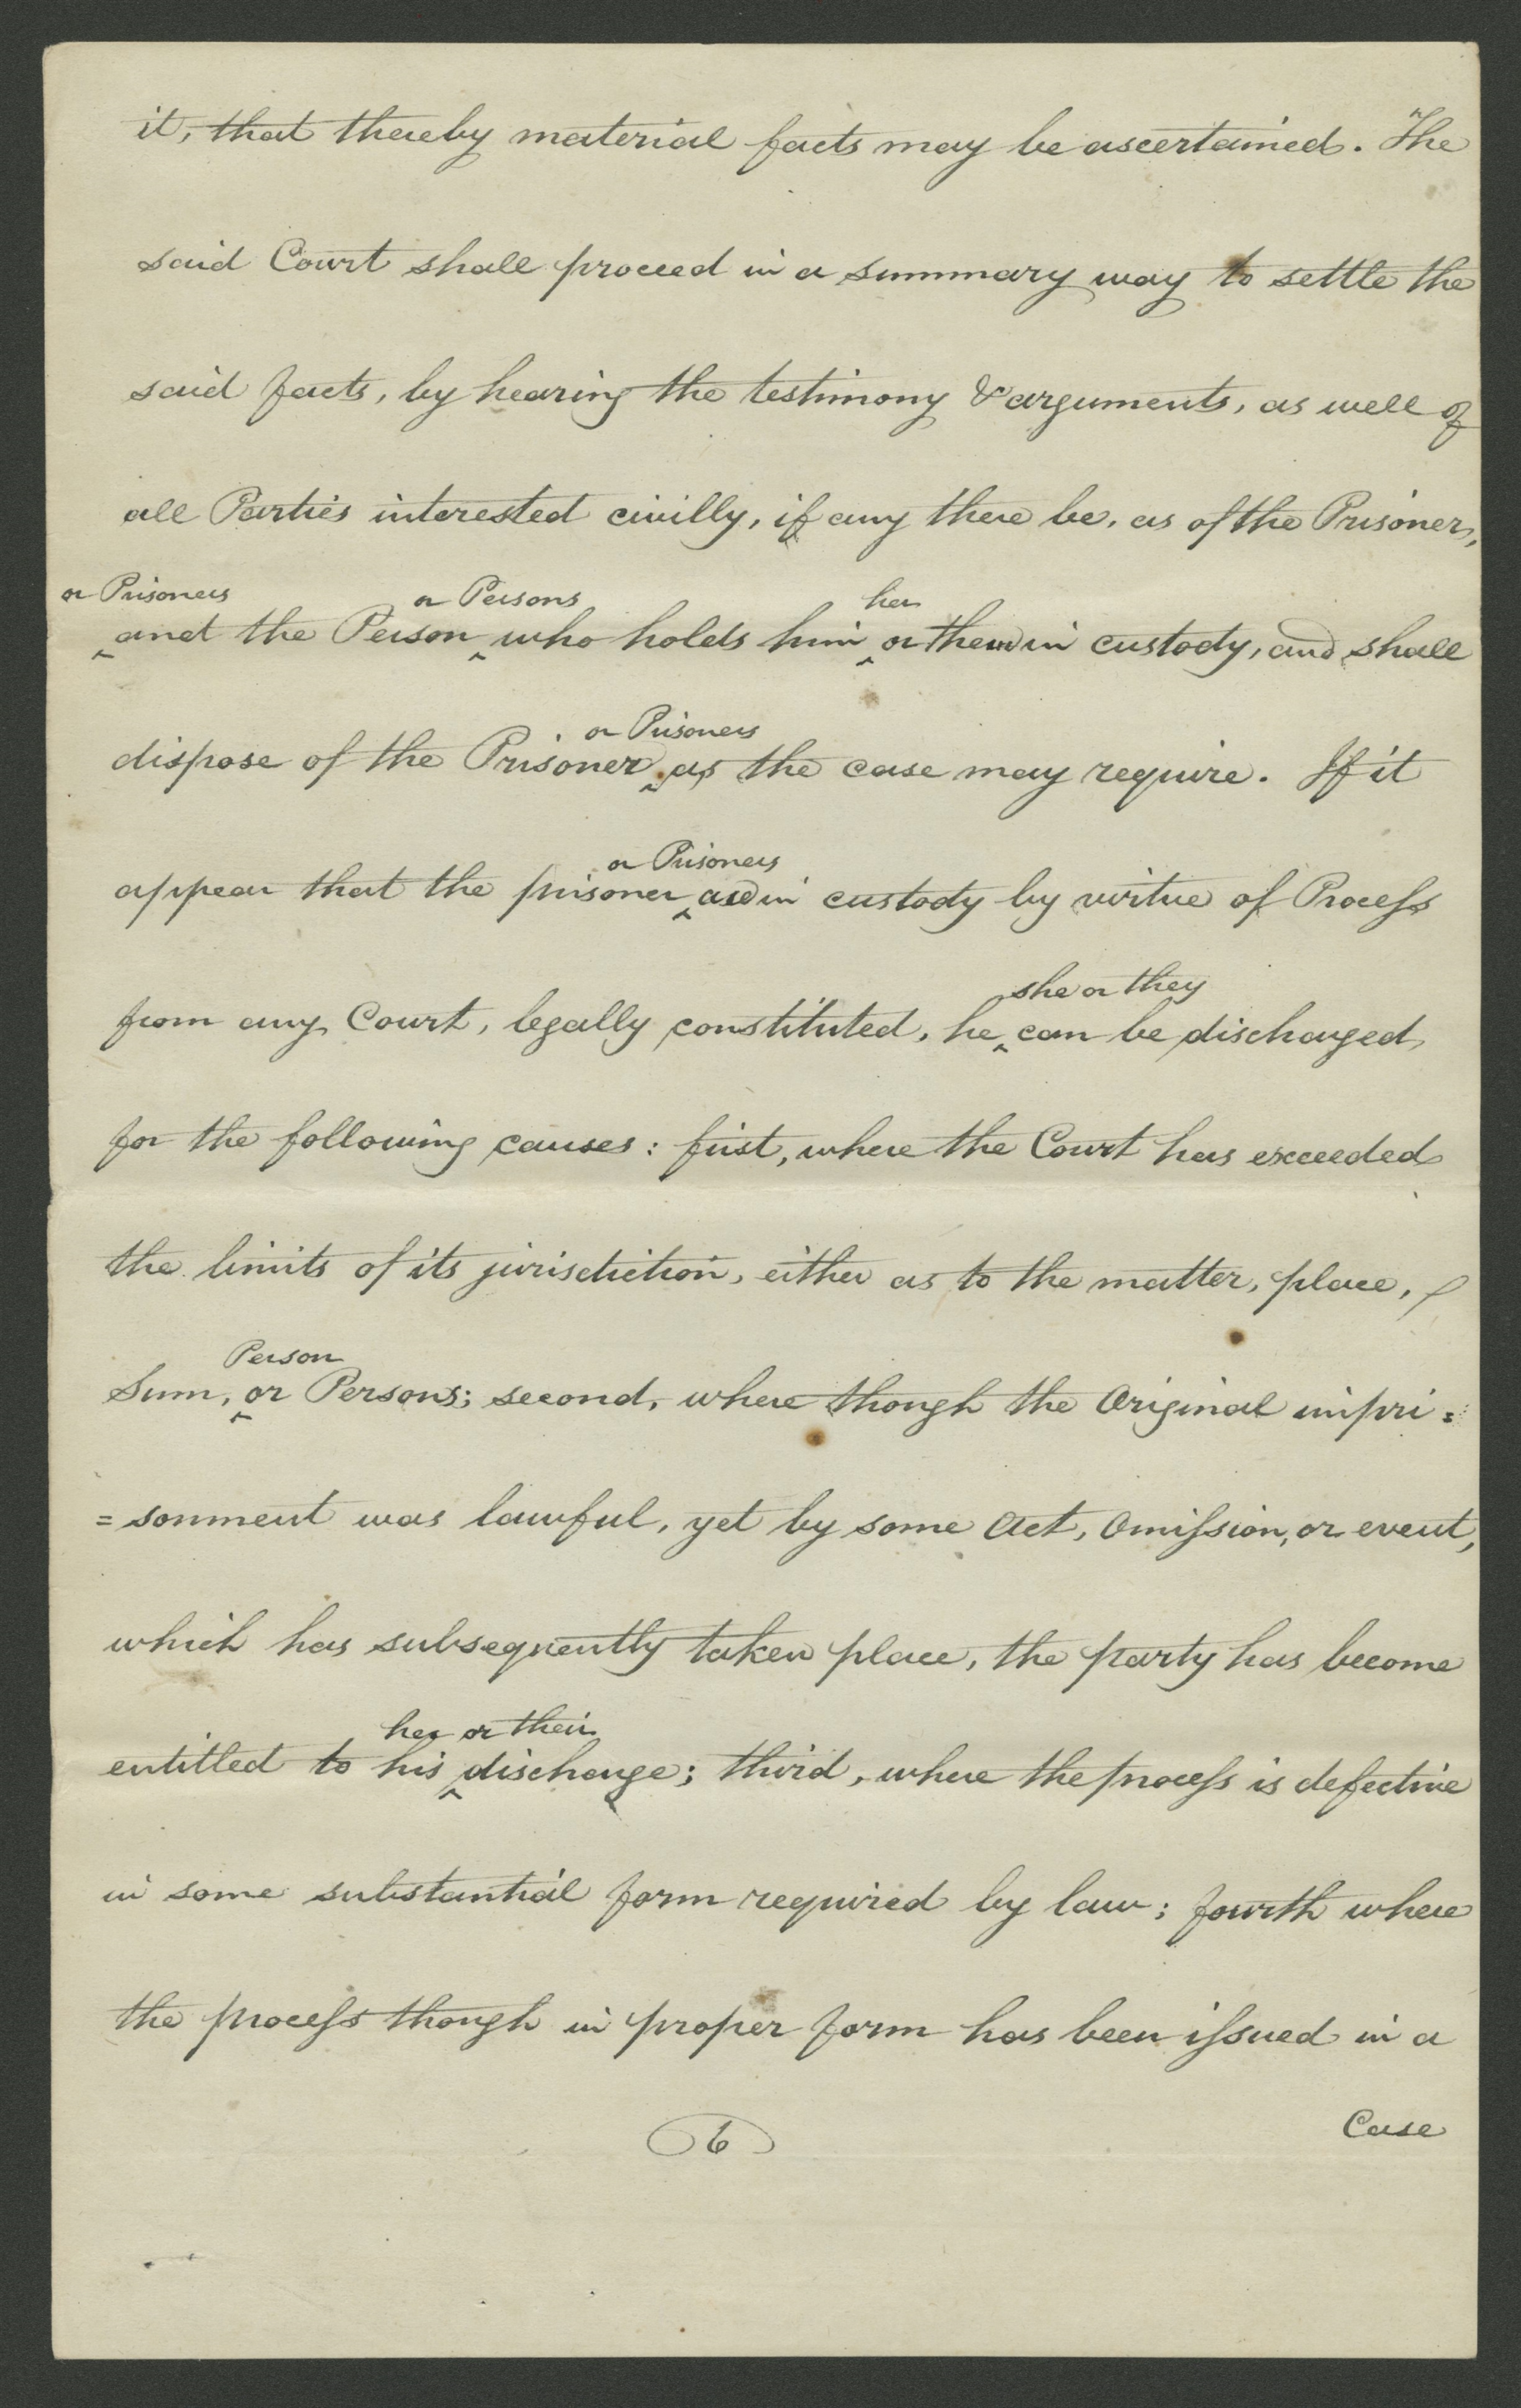 it, that thereby material facts may be ascertained. The
said Court shall proceed in a summary way to settle the
said facts, by hearing the testimony & arguments, as well of
all Parties interested civilly, if any there be, as of the Prisoner,
or Prisoners or Persons her
and the Person who holds him or them in custody, and shall
or Prisoners
dispose of the Prisoner, as the case may require. If it
or Prisoners
appear that the prisoner are in custody by virtue of Process
she or they
from any Court, legally constituted, he can be discharged
for the following causes: first, where the Court has exceeded
the limits of its jurisdiction, either as to the matter, place,
Person
Sum, or Persons; second, where though the Original impri=
=sonment was lawful, yet by some Act, Omission, or event,
which has subsequently taken place, the party has become
her or their
entitled to his discharge; third, where the process is defective
in some substantial form required by law; fourth where
the process though in proper form has been issued in a
Case
6